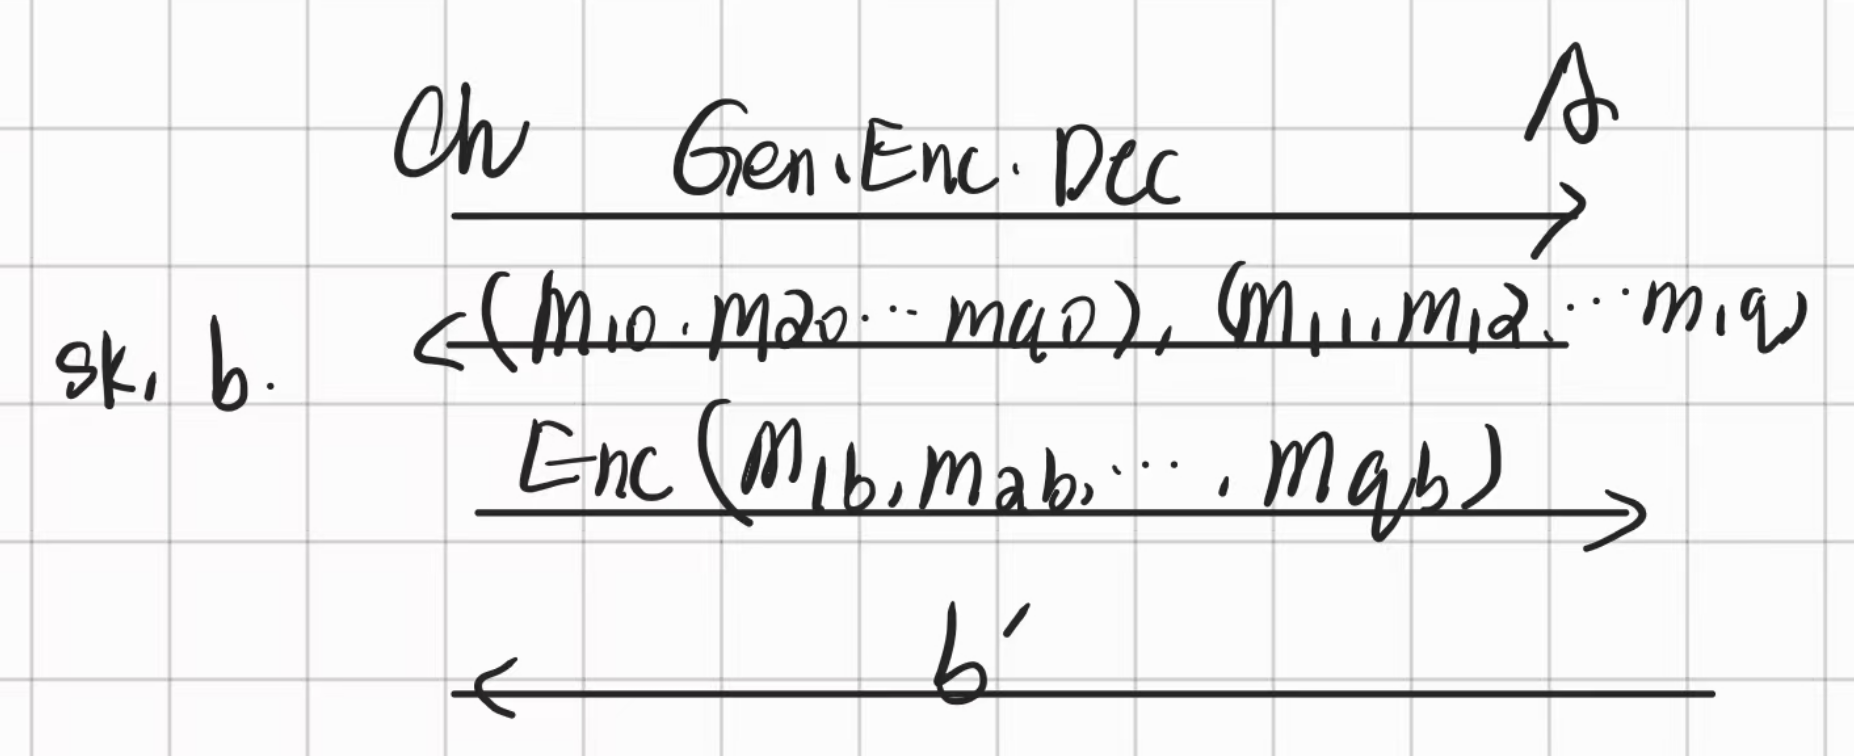 Ch Gen.Enc.Dec A
(m10.m20...mq0), (m11,m12,...m1q)
sk, b.
Enc(m1b,m2b,...,mqb)
b'